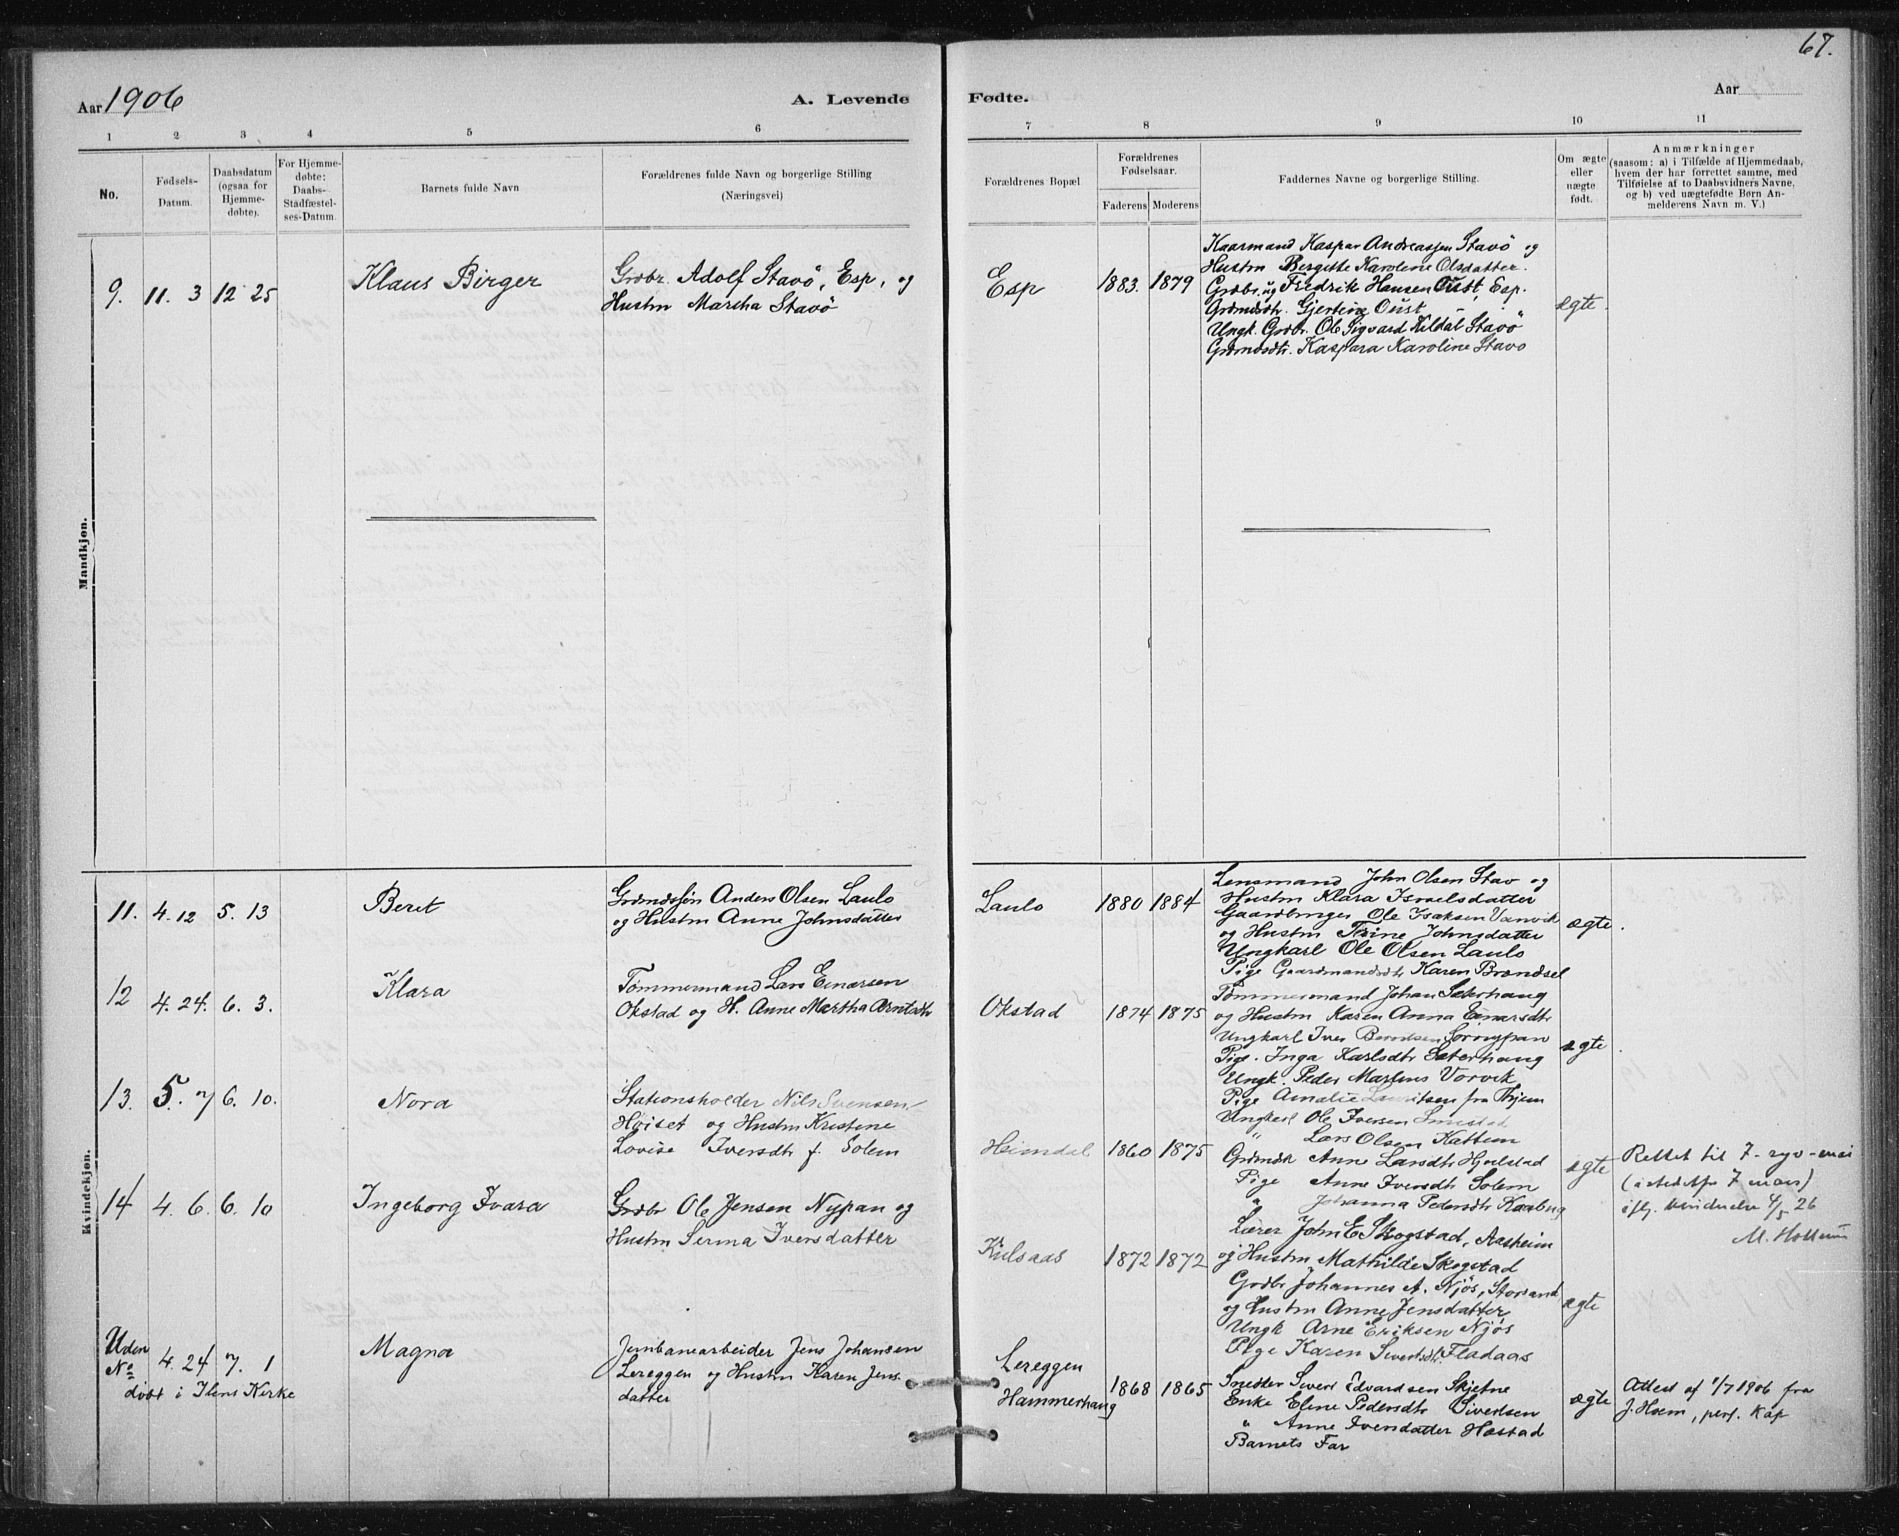 67.
Aar 1906
A. Levende Fødte.
Aar
1 2 3 4 5 6 7 8 9 10 11
No.
Fødsels-
Datum.
Daabsdatum
(ogsaa for
Hjemme-
døbte).
For Hjemme-
døbte:
Daabs-
Stadfæstel-
ses-Datum.
Barnets fulde Navn
Forældrenes fulde Navn og borgerlige Stilling
(Næringsvei)
Forældrenes Bopæl
Forældrenes
Fødselsaar.
Faderens Moderens
Faddernes Navne og borgerlige Stilling.
Om ægte
eller
uægte
født.
Anmærkninger
(saasom: a) i Tilfælde af Hjemmedaab,
hvem der har forrettet samme, med
Tilføielse af to Daabsvidners Navne,
og b) ved uægtefødte Børn An-
melderens Navn m. V.)
Mandkjøn.
9. 11. 3 12 25
Klaus Birger
Grdbr. Adolf Stavö, Esp, og
Hustru Martha Stavö
Esp
1883. 1879
Kaarmand Kaspar Andreassen Stavö og
Hustru Bergitte Karoline Olsdatter.
Grdbr. og Fredrik Hansen Oust, Esp.
Grdmdsdtr. Gjertine Oust
Ungk. Grdbr. Ole Sigvard Kildal Stavö
Grdmdsdtr. Kaspara Karoline Stavo
ægte.
Kvindekjøn.
11. 4.12 5. 13
Beret
Grdmdssøn Anders Olsen Laulo
og Hustru Anne Johnsdatter
Laulo
1880 1884
Lensmand John Olsen Stav og
Hustru Klara Israelsdatter
Gaardbruger Ole Isaksen Vanvik
og Hustru Trine Johnsdatter
Ungkarl Ole Olsen Laulo
Pige Gaardmandsdtr Karen Brændsel
ægte.
12 4.24. 6. 3.
Klara
Tömmermand Lars Einarsen
Okstad og H. Anne Martha Arntsdtr
Okstad
1874 1875
Tömmermand Johan Sæterhaug
og Hustru Karen Anna Einarsdtr
Ungkarl Iver Berntsen Sörnypan
Pige. Inga Karlsdtr Sæterhaug
Ungk. Peder Martinus Vorvik
Pige Amalie Lauritsen fra Thjem
ægte.
13. 5. 7 6. 10.
Nora
Stationsholder Nils Svensen
Höiset og Hustru Kristine
Lovise Iversdtr f. Solem
Heimdal
1860 1875
Ungkarl Ole Iversen
" Lars Olsen Kattem
Grdmdsk Anne Larsdtr Hjelstad
Pige Anne Iversdtr Solem
" Johanna Pedersdtr
ægte
Rettet til 7.
(istedetfor 7 mars)
4/5 26
14 4. 6. 6. 10
Ingeborg Ivara
Grdbr Ole Jensen Nypan og
Hustru Serma Iversdatter
Kulsaas
1872 1872
Lærer John E Skogstad, Aasheim
og Hustru Mathilde Skogstad
Grdbr Johannes A. Njös,
og Hustru Anne Jensdatter
Ungk Arne Eriksen Njös
Pige Karen Sivertsdtr. Fladaas
ægte
Uden
No 4. 24 7. 1
döbt i Ilens Kirke
Magna
Jernbanearbeider Jens Johansen
Lereggen og Hustru Karen Jens-
datter
Lereggen
Hammerhaug
1868 1865
Snedker Sivert Edvardsen Skjetne
Enke Eline Pedersdtr Sivertsen
" Anne Iversdatter Hæstad
Barnets Far
ægte
Attest af 1/7 1906 fra
J. Hoem, pers. Kap